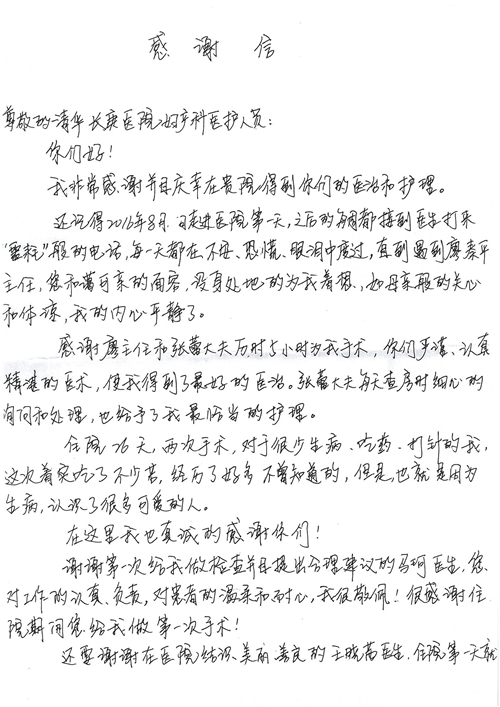 感谢信
尊敬的清华长庚医院妇产科医护人员：
你们好！
我非常感谢并且庆幸在贵院得到你们的医治和护理。
还记得2016年8月 日走进医院第一天，之后的每周都接到医生打来
“噩耗”般的电话，每一天都在不安、恐慌、眼泪中度过，直到遇到廖秦平
主任，您和蔼可亲的面容，设身处地的为我着想，如母亲般的关心
和体谅，我的内心平静了。
感谢廖主任和张蕾大夫历时5小时为我手术，你们严谨、认真
精湛的医术，使我得到了最好的医治。张蕾大夫每天查房时细心的
询问和处理，也给予了我最恰当的护理。
住院26天，两次手术，对于很少生病、吃药、打针的我，
这次着实吃了不少苦，经历了好多不曾知道的，但是，也就是因为
生病，认识了很多可爱的人。
在这里我也真诚的感谢你们！
谢谢第一次给我做检查并且提出合理建议的马珂医生，您
对工作的认真、负责，对患者的温柔和耐心，我很敬佩！很感谢住
院期间您给我做第一次手术！
还要谢谢在医院结识、美丽善良的王晓茜医生，住院第一天就